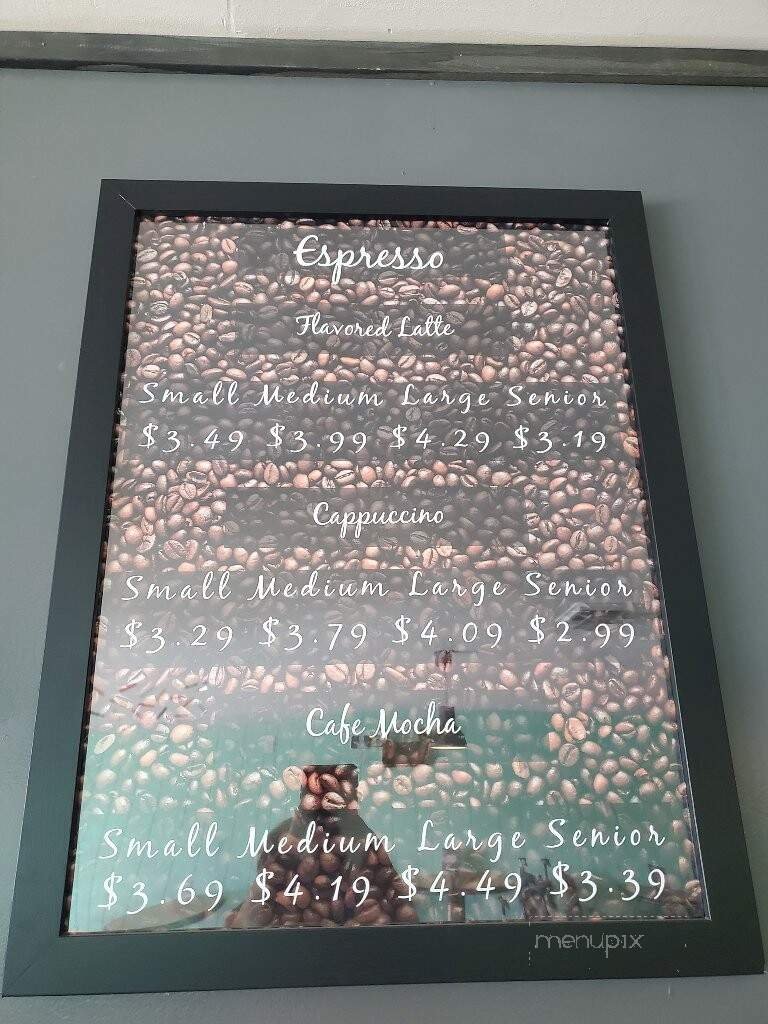 Espresso
Flavored Latte
Small Medium Large Senior
$3.49 $3.99 $4.29 $3.19
Cappuccino
Small Medium Large Senior
$3.29 $3.79 $4.09 $2.99
Cafe Mocha
Small Medium Large Senior
$3.69 $4.19 $4.49 $3.39
menupix